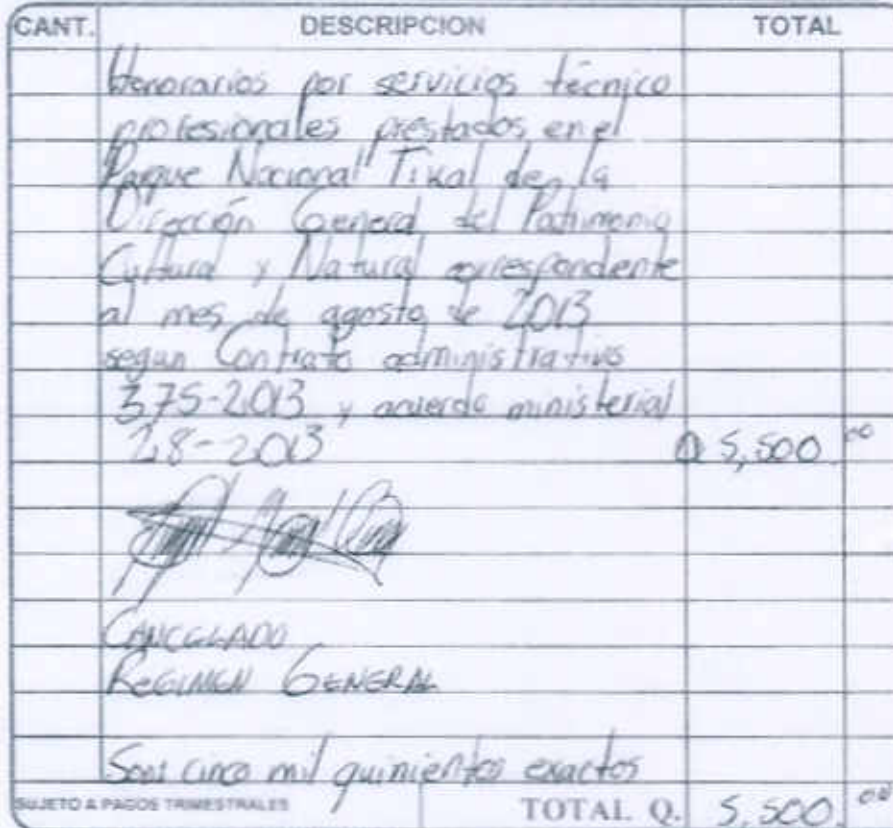 CANT. DESCRIPCION TOTAL
Honorarios por servicios técnico
profesionales prestados en el
Parque Nacional Tikal de la
Dirección General del Patrimonio
Cultural y Natural correspondiente
al mes de agosto de 2013
segun Contrato administrativo
375-2013 y acuerdo ministerial
28-2013 Q 5,500.00
CANCELADO
REGIMEN GENERAL
Son cinco mil quinientos exactos
SUJETO A PAGOS TRIMESTRALES TOTAL Q. 5,500.00